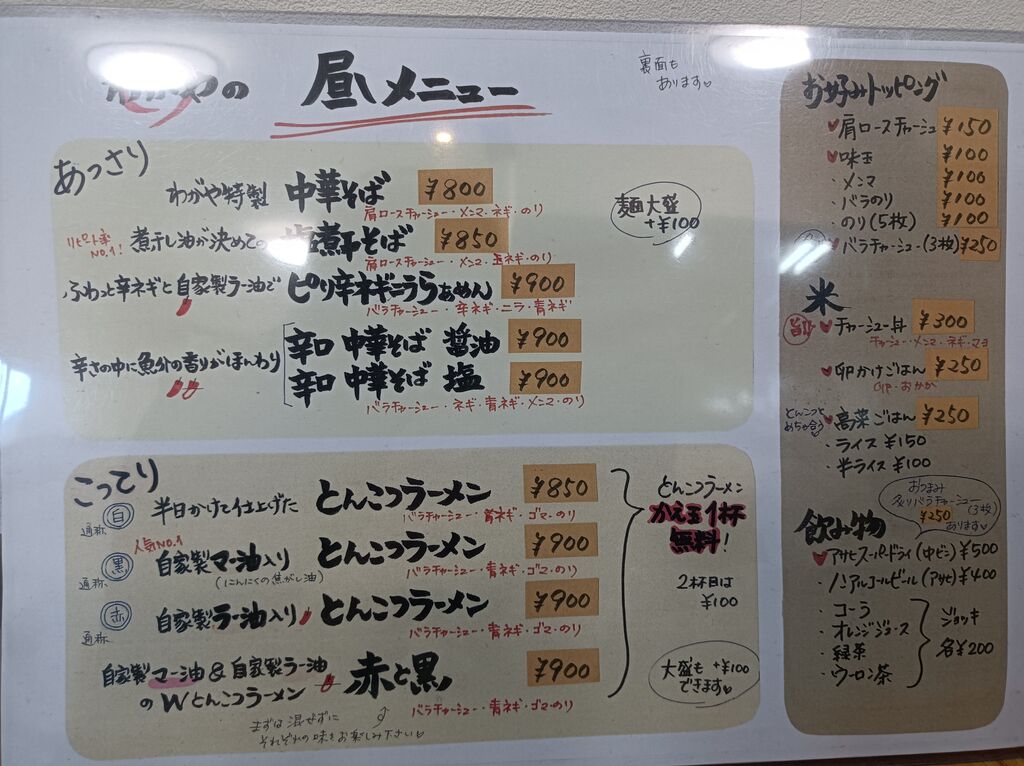 わがやの 昼メニュー
裏面も
あります♡
あっさり
わがや特製 中華そば ¥800
肩ロースチャーシュー・メンマ・ネギ・のり
リピート率
No.1!
煮干し油が決めての 塩煮干そば ¥850
肩ロースチャーシュー・メンマ・玉ネギ・のり
ふわっと辛ネギと自家製ラー油で ピリ辛ネギニララぁめん ¥900
バラチャーシュー・辛ネギ・ニラ・青ネギ
辛さの中に魚介の香りがほんわり
辛口 中華そば 醤油 ¥900
辛口 中華そば 塩 ¥900
バラチャーシュー・ネギ・青ネギ・メンマ・のり
麺大盛
+¥100
こってり
通称 白 半日かけて仕上げた とんこつラーメン ¥850
バラチャーシュー・青ネギ・ゴマ・のり
人気No.1
通称 黒 自家製マー油入り とんこつラーメン ¥900
(にんにくの焦がし油)
バラチャーシュー・青ネギ・ゴマ・のり
通称 赤 自家製ラー油入り とんこつラーメン ¥900
バラチャーシュー・青ネギ・ゴマ・のり
自家製マー油&自家製ラー油
のWとんこつラーメン 赤と黒 ¥900
バラチャーシュー・青ネギ・ゴマ・のり
まずは混ぜずに
それぞれの味をお楽しみ下さい♡
とんこつラーメン
かえ玉1杯
無料!
2杯目は
¥100
大盛も+¥100
できます♡
お好みトッピング
♥肩ロースチャーシュ ¥150
♥味玉 ¥100
・メンマ ¥100
・バラのり ¥100
・のり(5枚) ¥100
♥バラチャーシュー(3枚) ¥250
米
旨 ♥チャーシュー丼 ¥300
チャーシュー・メンマ・ネギ・マヨ
♥卵かけごはん ¥250
卵・おかか
とんこつと
めちゃ合う
♥高菜ごはん ¥250
・ライス ¥150
・半ライス ¥100
おつまみ
炙りバラチャーシュー
(3枚)
¥250
あります♡
飲み物
♥アサヒスーパードライ(中ビン) ¥500
・ノンアルコールビール(アサヒ) ¥400
・コーラ
・オレンジジュース
・緑茶
・ウーロン茶
ジョッキ
各¥200